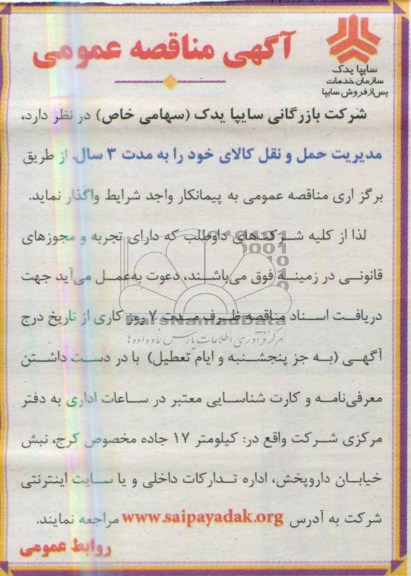 آگهی مناقصه عمومی
سایپا یدک
سازمان خدمات
پس‌از‌فروش سایپا
شرکت بازرگانی سایپا یدک (سهامی خاص) در نظر دارد،
مدیریت حمل و نقل کالای خود را به مدت ۳ سال، از طریق
برگزاری مناقصه عمومی به پیمانکار واجد شرایط واگذار نماید.
لذا از کلیه شرکت‌های داوطلب که دارای تجربه و مجوزهای
قانونی در زمینه فوق می‌باشند، دعوت به‌عمل می‌آید جهت
دریافت اسناد مناقصه ظرف مدت ۷ روز کاری از تاریخ درج
ParsNamadData
مرکز فرآوری اطلاعات پارس نماد داده‌ها
آگهی (به جز پنجشنبه و ایام تعطیل) با در دست داشتن
معرفی‌نامه و کارت شناسایی معتبر در ساعات اداری به دفتر
مرکزی شرکت واقع در: کیلومتر ۱۷ جاده مخصوص کرج، نبش
خیابان داروپخش، اداره تدارکات داخلی و یا سایت اینترنتی
شرکت به آدرس www.saipayadak.org مراجعه نمایند.
روابط عمومی